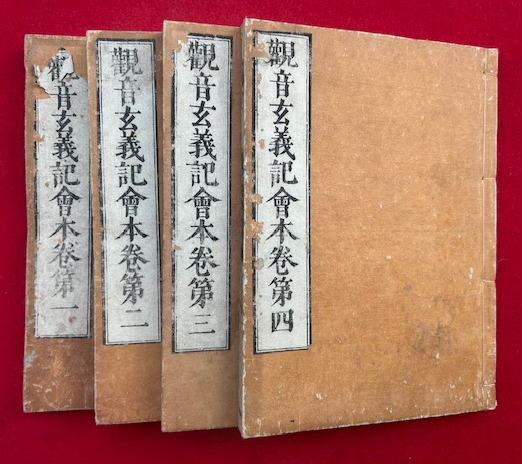 觀音玄義記會本卷第一
觀音玄義記會本卷第二
觀音玄義記會本卷第三
觀音玄義記會本卷第四